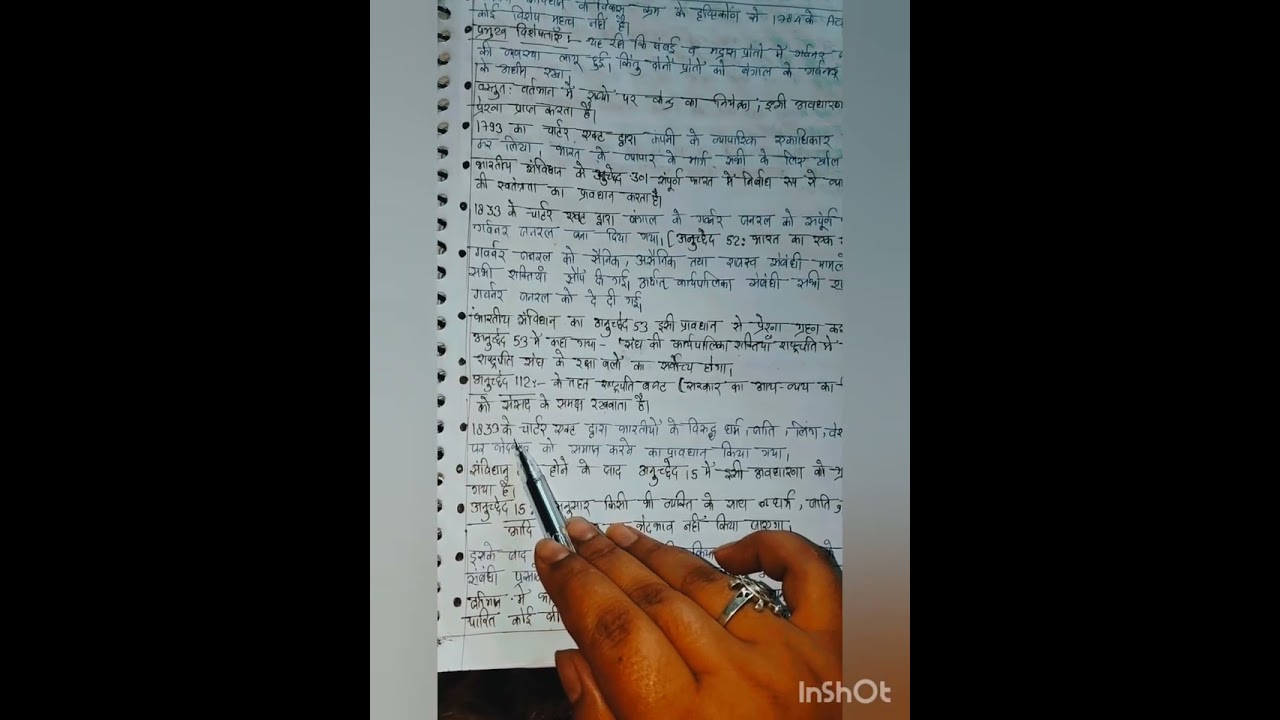 संविधान के विकास क्रम के दृष्टिकोण से 1784 के Act
कोई विशेष महत्व नहीं है।
प्रमुख विशेषताएं:- यह रही कि बंबई व मद्रास प्रांतों में गवर्नर
की व्यवस्था लागू हुई। किंतु दोनों प्रांतों को बंगाल के गवर्नर
के अधीन रखा।
वस्तुत: वर्तमान में राज्यों पर केन्द्र का नियंत्रण, इसी अवधारणा
प्रेरणा प्राप्त करता है।
1793 का चार्टर एक्ट द्वारा कंपनी के व्यापारिक एकाधिकार
कर लिया। भारत के व्यापार के मार्ग सभी के लिए खोल
भारतीय संविधान के अनुच्छेद 301 संपूर्ण भारत में निर्बाध रूप से व्या
की स्वतंत्रता का प्रावधान करता है।
1833 के चार्टर एक्ट द्वारा बंगाल के गवर्नर जनरल को संपूर्ण
गवर्नर जनरल बना दिया गया। [अनुच्छेद 52: भारत का एक
गवर्नर जनरल को सैनिक, असैनिक तथा राजस्व संबंधी मामलो
सभी शक्तियाँ सौंप दी गई। अर्थात् कार्यपालिका संबंधी सभी श
गवर्नर जनरल को दे दी गई।
भारतीय संविधान का अनुच्छेद 53 इसी प्रावधान से प्रेरणा ग्रहण कर
अनुच्छेद 53 में कहा गया- "संघ की कार्यपालिका शक्तियाँ राष्ट्रपति में
राष्ट्रपति संघ के रक्षा बलों का सर्वोच्च होगा।
अनुच्छेद 112:- के तहत राष्ट्रपति बजट (सरकार का आय-व्यय का
को संसद के समक्ष रखवाता है।
1833 के चार्टर एक्ट द्वारा भारतीयों के विरुद्ध धर्म, जाति, लिंग, वंश
पर को समाप्त करने का प्रावधान किया गया।
संविधान होने के बाद अनुच्छेद 15 में इसी अवधारणा को
गया है।
अनुच्छेद 15: अनुसार किसी भी व्यक्ति के साथ धर्म, जाति,
आदि भेदभाव नहीं किया जाएगा।
इसके बाद
संबंधी
वर्तमान में
पारित कोई
InShOt